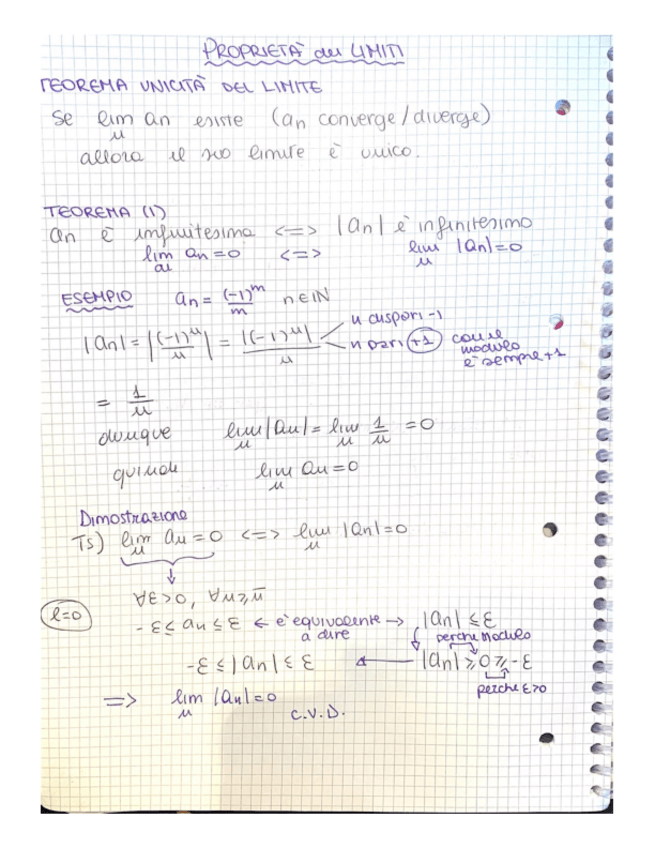 PROPRIETÀ dei LIMITI
TEOREMA UNICITÀ DEL LIMITE
Se lim an esiste (an converge/diverge)
n
allora il suo limite è unico.
TEOREMA (1)
an è infinitesima <=> |an| è infinitesimo
lim an = 0 <=> lim |an| = 0
n n
ESEMPIO an = (-1)^n / n n ∈ IN
|an| = |(-1)^n / n| = |(-1)^n| / n
n dispari -1
n pari +1 con il modulo è sempre +1
= 1/n
dunque lim |an| = lim 1/n = 0
n n
quindi lim an = 0
n
Dimostrazione
Ts) lim an = 0 <=> lim |an| = 0
n n
↓
∀ε>0, ∀n≥n̅
l=0
-ε ≤ an ≤ ε ← è equivalente a dire → |an| ≤ ε
perché modulo
-ε ≤ |an| ≤ ε ← |an| ≥ 0 ≥ -ε
perché ε>0
=> lim |an| = 0
n
C.V.D.